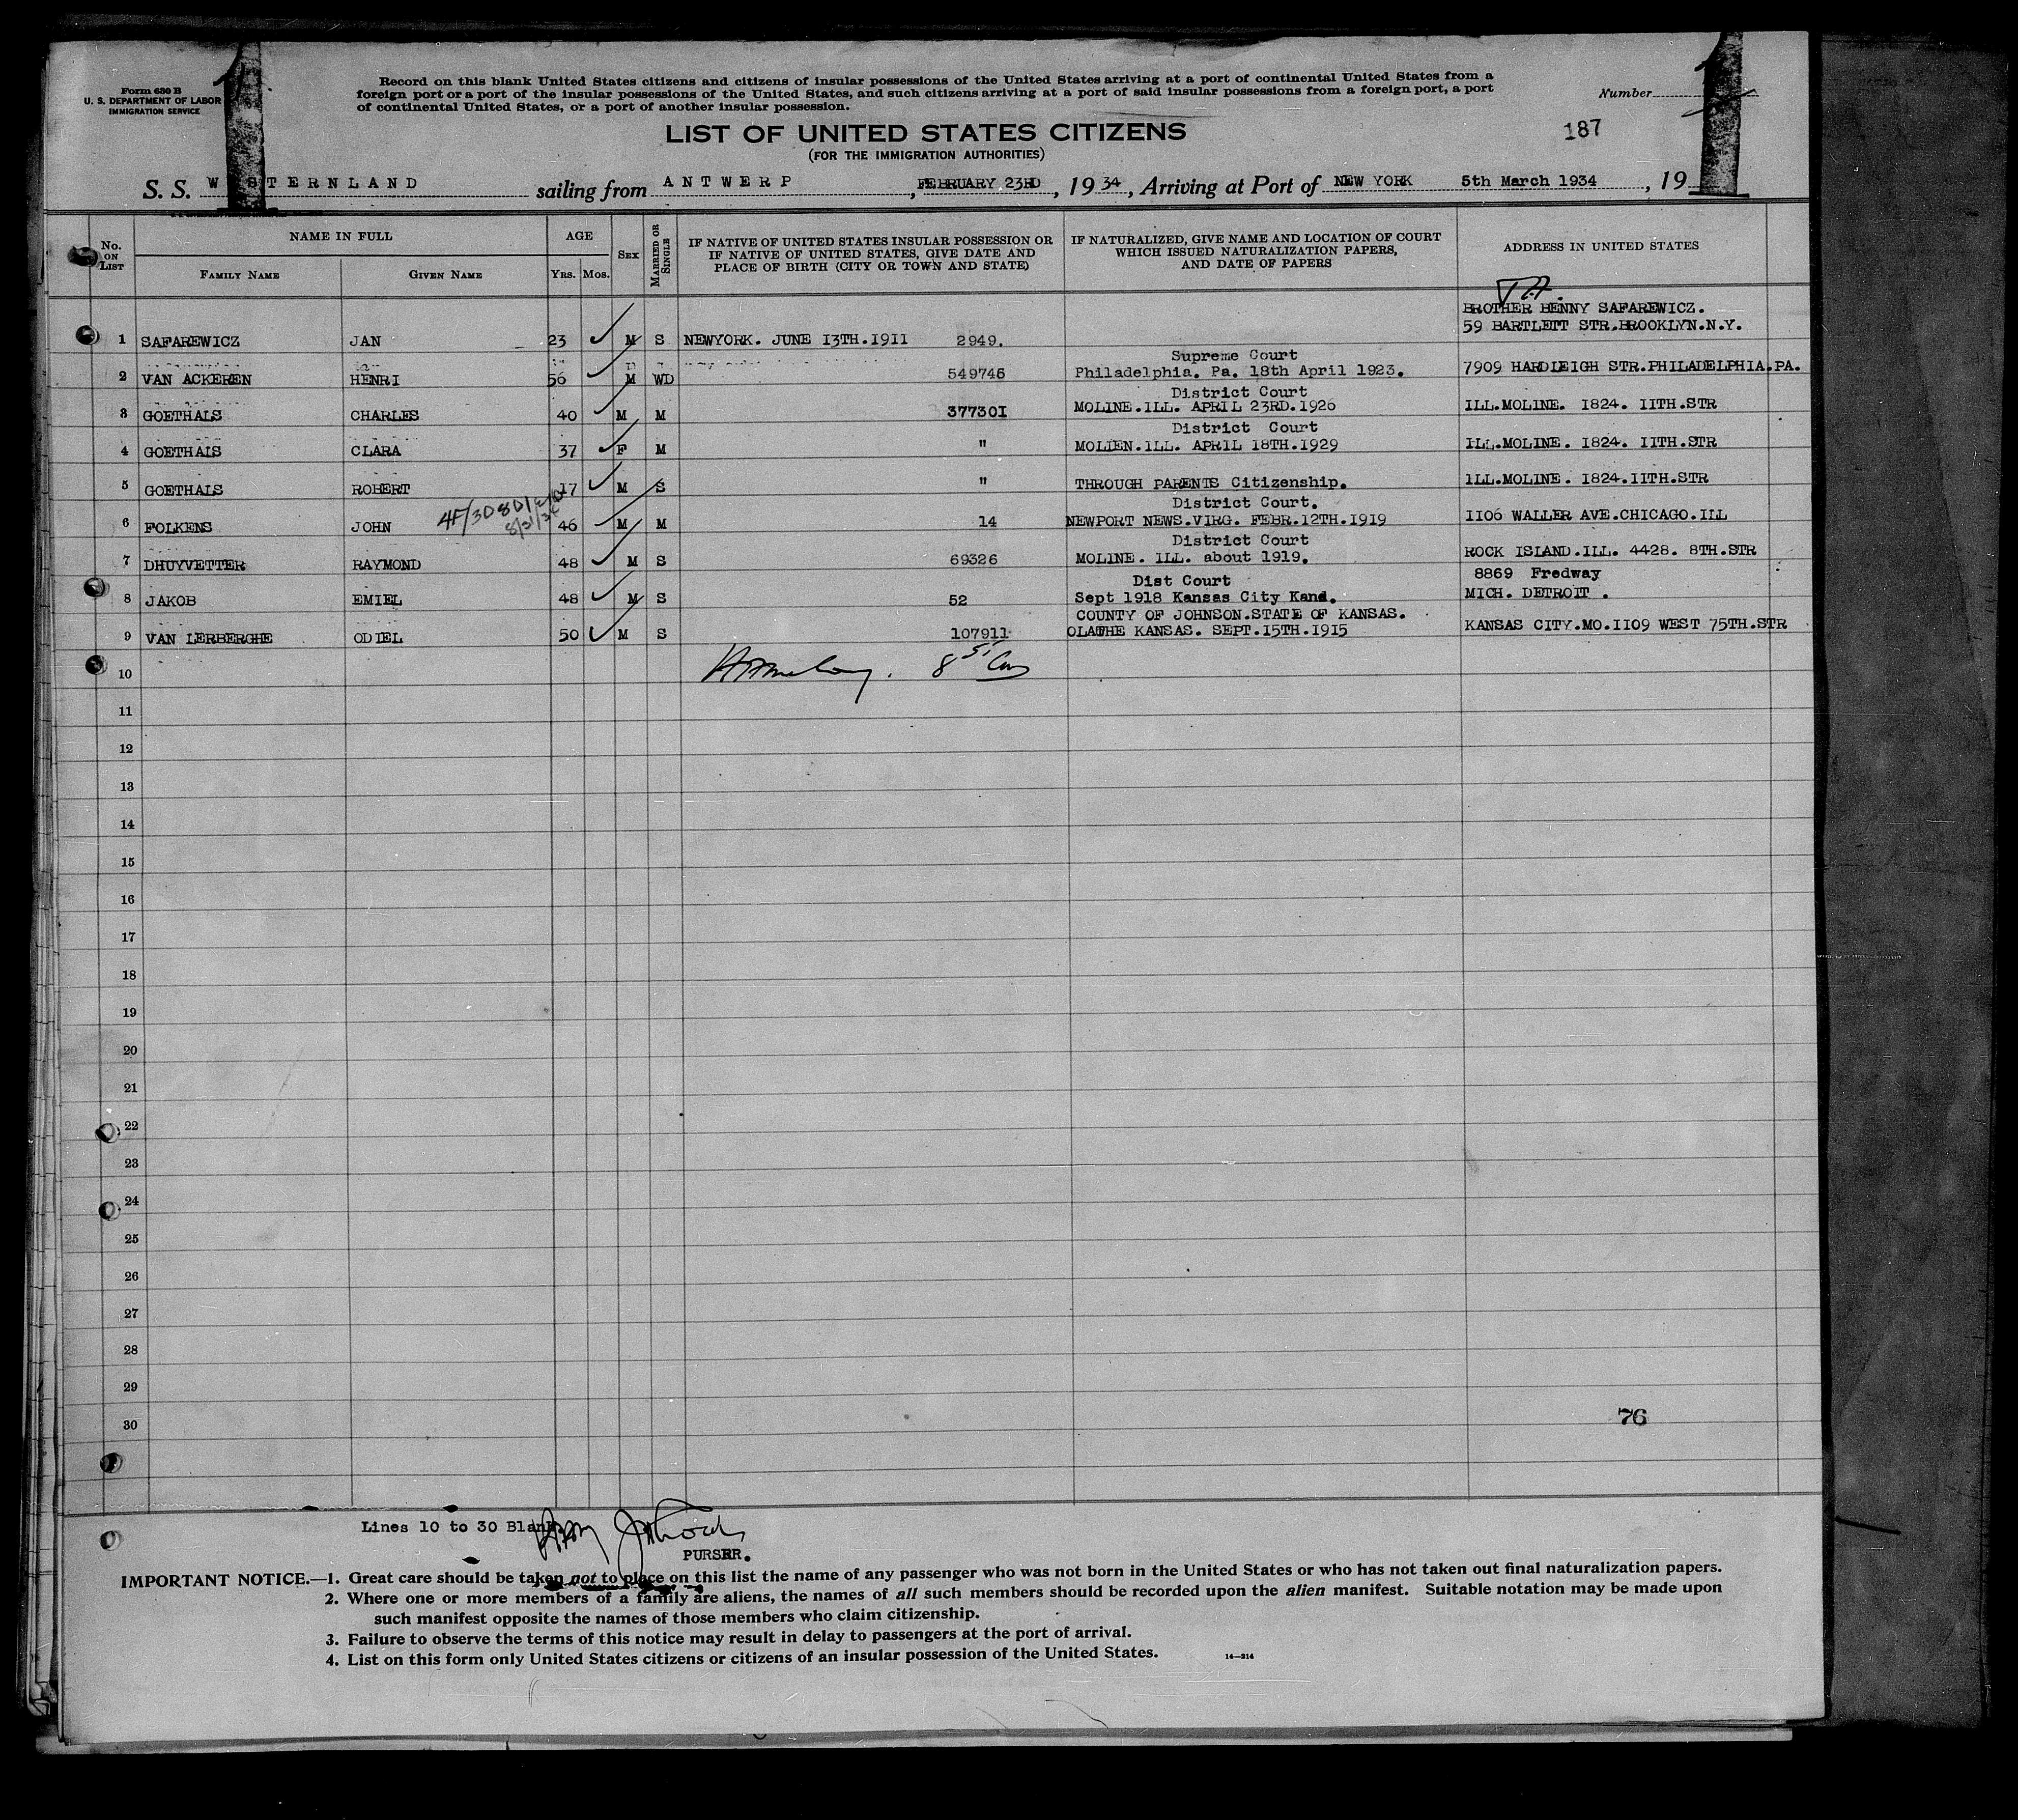 Form 630 B
U. S. DEPARTMENT OF LABOR
IMMIGRATION SERVICE
Record on this blank United States citizens and citizens of insular possessions of the United States arriving at a port of continental United States from a
foreign port or a port of the insular possessions of the United States, and such citizens arriving at a port of said insular possessions from a foreign port, a port
of continental United States, or a port of another insular possession.
Number
187
LIST OF UNITED STATES CITIZENS
(FOR THE IMMIGRATION AUTHORITIES)
S. S. WESTERNLAND sailing from ANTWERP, FEBRUARY 23RD, 1934, Arriving at Port of NEW YORK 5th March 1934, 19
No. ON LIST NAME IN FULL AGE SEX MARRIED OR SINGLE IF NATIVE OF UNITED STATES INSULAR POSSESSION OR IF NATIVE OF UNITED STATES, GIVE DATE AND PLACE OF BIRTH (CITY OR TOWN AND STATE) IF NATURALIZED, GIVE NAME AND LOCATION OF COURT WHICH ISSUED NATURALIZATION PAPERS, AND DATE OF PAPERS ADDRESS IN UNITED STATES
FAMILY NAME GIVEN NAME YRS. MOS.
BROTHER BENNY SAFAREWICZ.
59 BARTLETT STR.BROOKLYN.N.Y.
1 SAFAREWICZ JAN 23 M S NEWYORK. JUNE I3TH.1911 2949.
Supreme Court
2 VAN ACKEREN HENRI 56 M WD 549746 Philadelphia. Pa. 18th April 1923. 7909 HARDLEIGH STR.PHILADELPHIA.PA.
District Court
3 GOETHALS CHARLES 40 M M 37730I MOLINE.ILL. APRIL 23RD.1926 ILL.MOLINE. I824. IITH.STR
District Court
4 GOETHALS CLARA 37 F M " MOLIEN.ILL. APRIL 18TH.1929 ILL.MOLINE. I824. IITH.STR
5 GOETHALS ROBERT 17 M S " THROUGH PARENTS Citizenship. ILL.MOLINE. I824.IITH.STR
District Court.
6 FOLKENS JOHN 46 M M 14 NEWPORT NEWS.VIRG. FEBR.I2TH.I919 II06 WALLER AVE.CHICAGO.ILL
District Court
7 DHUYVETTER RAYMOND 48 M S 69326 MOLINE. ILL. about 1919. ROCK ISLAND.ILL. 4428. 8TH.STR
Dist Court 8869 Fredway
8 JAKOB EMIEL 48 M S 52 Sept 1918 Kansas City Kand. MICH. DETROIT .
COUNTY OF JOHNSON.STATE OF KANSAS.
9 VAN LERBERGHE ODIEL 50 M S 107911 OLATHE KANSAS. SEPT.I5TH.I915 KANSAS CITY.MO.II09 WEST 75TH.STR
10
11
12
13
14
15
16
17
18
19
20
21
22
23
24
25
26
27
28
29
30
76
Lines 10 to 30 Blank.
PURSER.
IMPORTANT NOTICE.—1. Great care should be taken not to place on this list the name of any passenger who was not born in the United States or who has not taken out final naturalization papers.
2. Where one or more members of a family are aliens, the names of all such members should be recorded upon the alien manifest. Suitable notation may be made upon
such manifest opposite the names of those members who claim citizenship.
3. Failure to observe the terms of this notice may result in delay to passengers at the port of arrival.
4. List on this form only United States citizens or citizens of an insular possession of the United States.
14—214